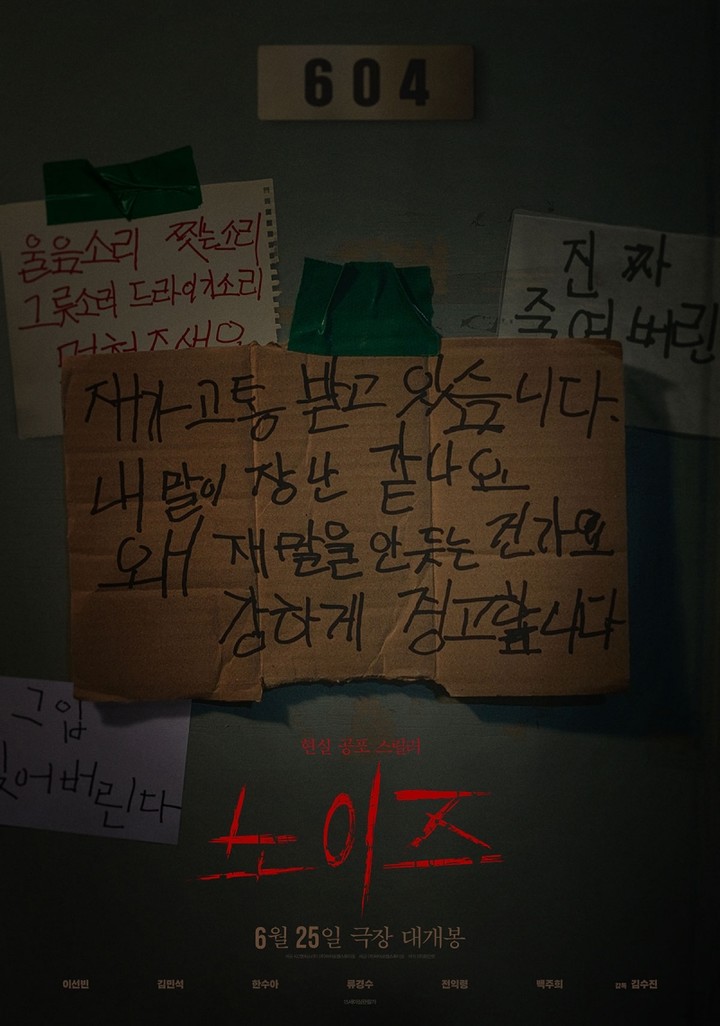 604
울음소리 찢는소리
그릇소리 드라이기소리
멈춰주세요
진짜
죽여버린
재가 고통 받고 있습니다.
내 말이 장난 같나요
왜 재 말을 안 듯는 건가요
강하게 경고합니다
그 입
찢어버린다
현실 공포 스릴러
노이즈
6월 25일 극장 대개봉
이선빈 김민석 한수아 류경수 전익령 백주희 감독 김수진